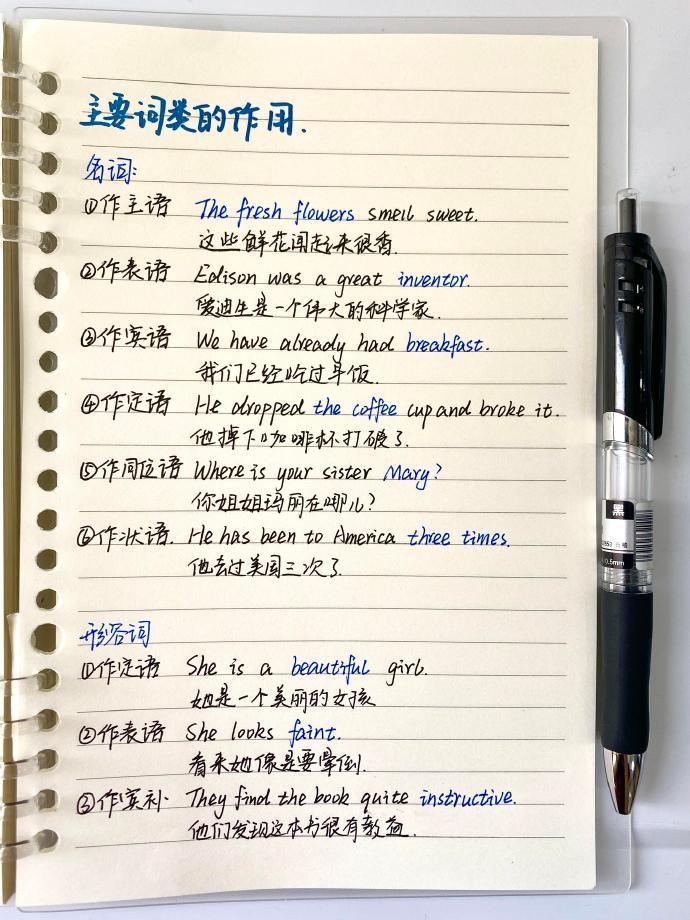 主要词类的作用.
名词:
①作主语 The fresh flowers smell sweet.
这些鲜花闻起来很香.
②作表语 Edison was a great inventor.
爱迪生是一个伟大的科学家.
③作宾语 We have already had breakfast.
我们已经吃过早饭.
④作定语 He dropped the coffee cup and broke it.
他掉下咖啡杯打破了.
⑤作同位语 Where is your sister Mary?
你姐姐玛丽在哪儿?
⑥作状语. He has been to America three times.
他去过美国三次了.
形容词
①作定语 She is a beautiful girl.
她是一个美丽的女孩
②作表语 She looks faint.
看来她像是要晕倒.
③作宾补. They find the book quite instructive.
他们发现这本书很有教益.
黑
0.5mm